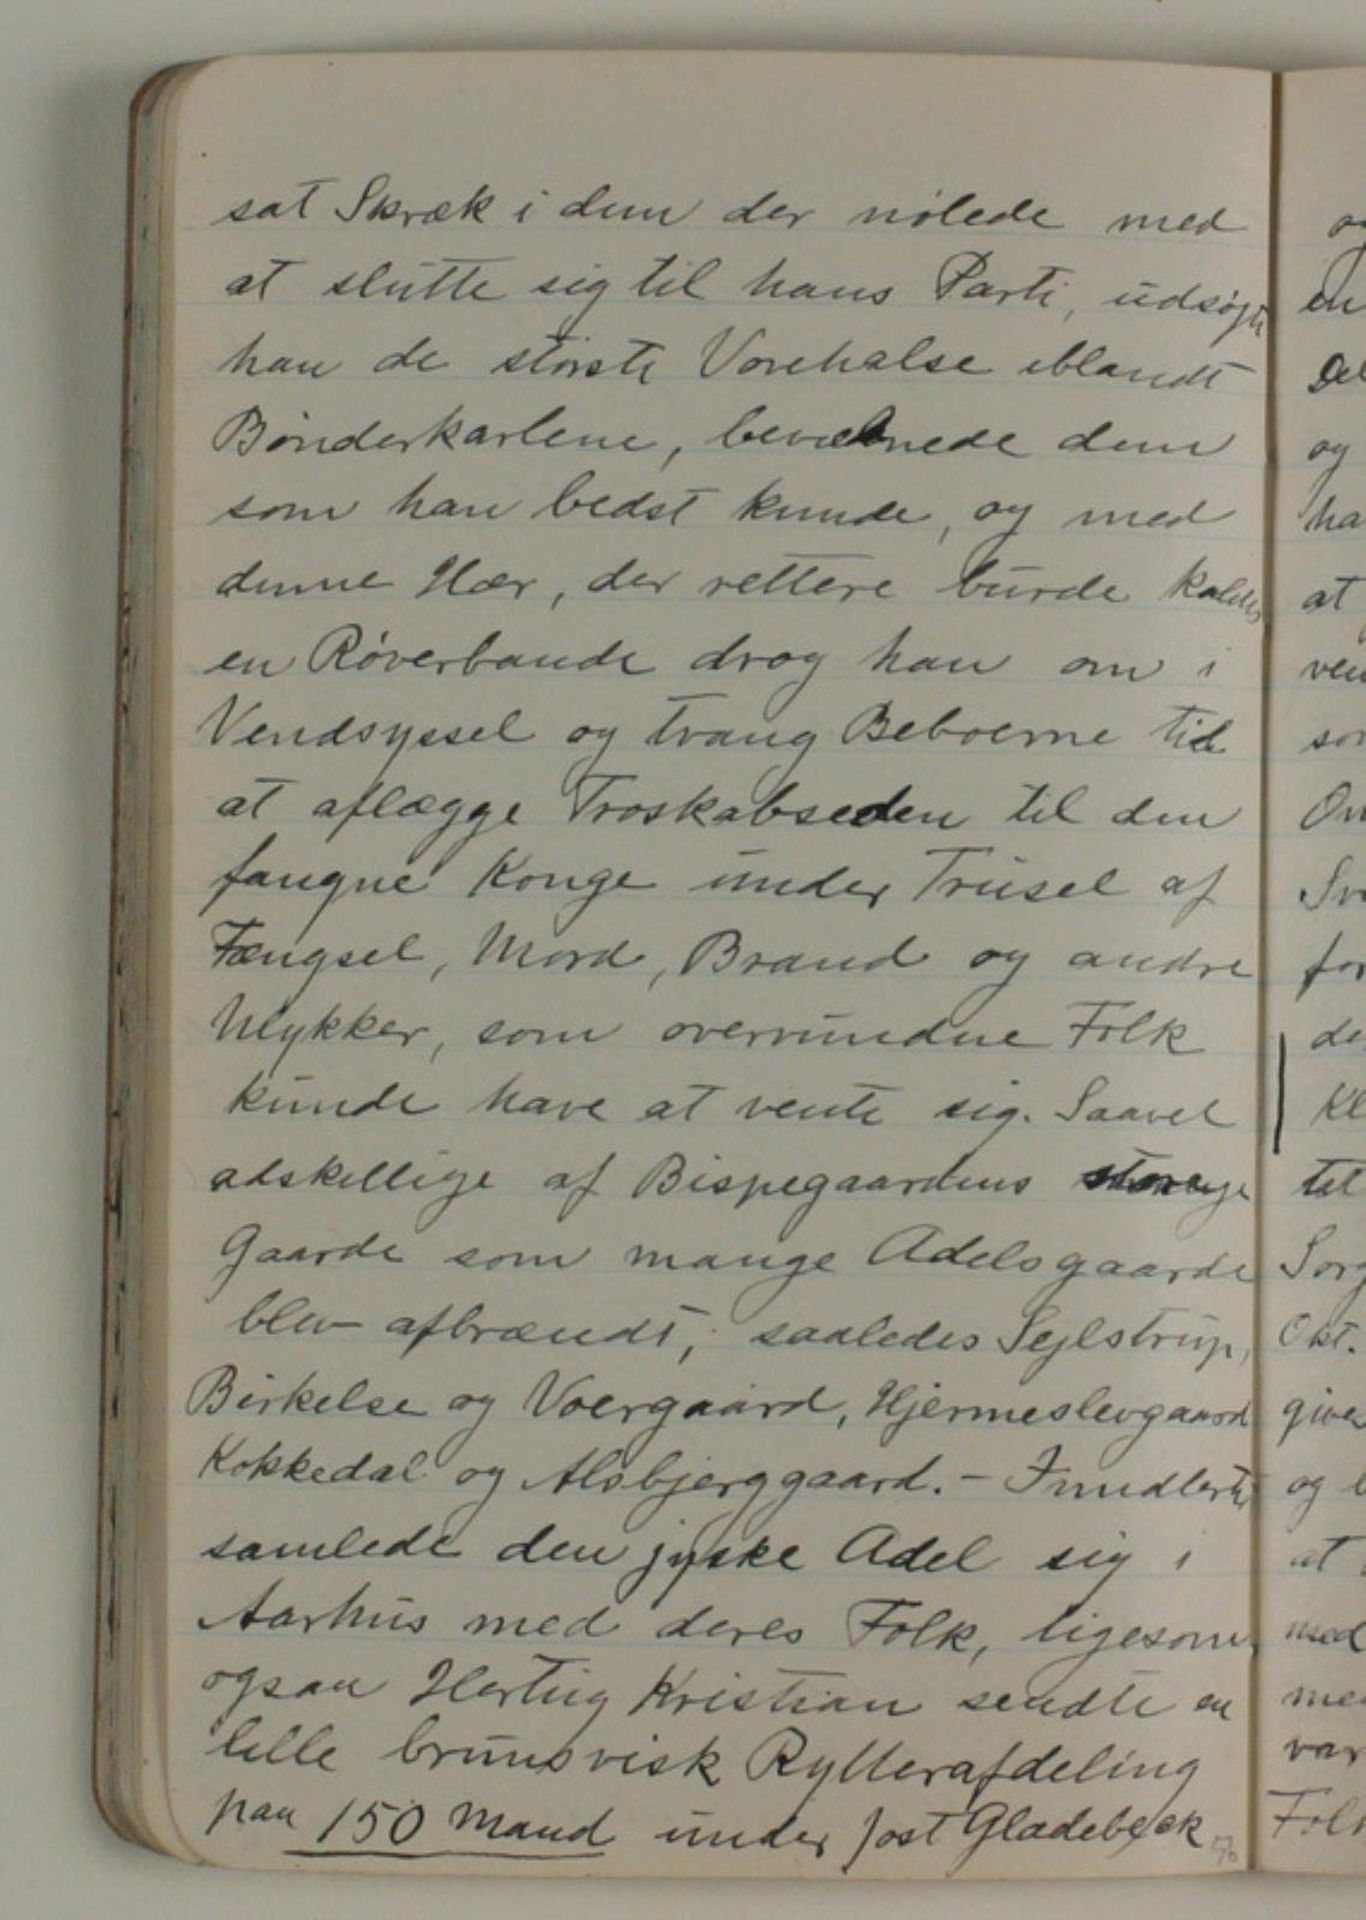 sat Skræk i dem der nølede med
at slutte sig til hans Parti, udsøgte
han de største Vovehalse iblandt
Bønderkarlene, bevæbnede dem
som han bedst kunde, og med
denne Hær, der rettere burde kaldes
en Røverbande drog han om i
Vendsyssel og tvang Beboerne til
at aflægge Troskabseden til den
fangne Konge under Trusel af
Fængsel, Mord, Brand og andre
Ulykker, som overvundne Folk
kunde have at vente sig. Saavel
adskellige af Bispegaardens
Gaarde som mange Adelsgaarde
blev afbrændt, saaledes Sejlstrup,
Birkelse og Voergaard, Hjermeslevgaard
Kokkedal og Alsbjerggaard. - Imidlertid
samlede den jyske Adel sig i
Aarhus med deres Folk, ligesom
ogsaa Hertug Kristian sendte en
lille brunsvisk Rytterafdeling
paa 150 Mand under Jost Gladebeck
56
en
og
ha
at
Okt.
og
at
med
var